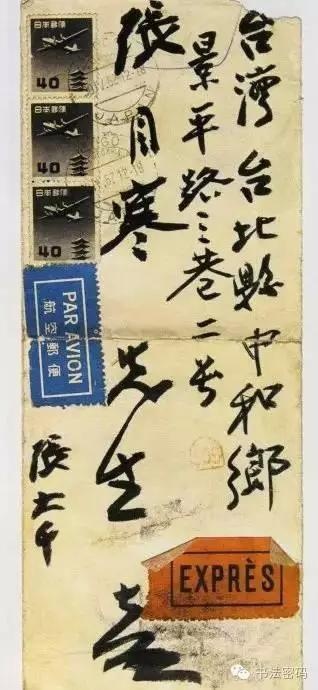 台灣台北縣中和鄉
景平路三巷二号
張目寒先生 台啟
張大千
日本郵便
40
日本郵便
40
日本郵便
40
PAR AVION
航空郵便
EXPRÈS
书法密码